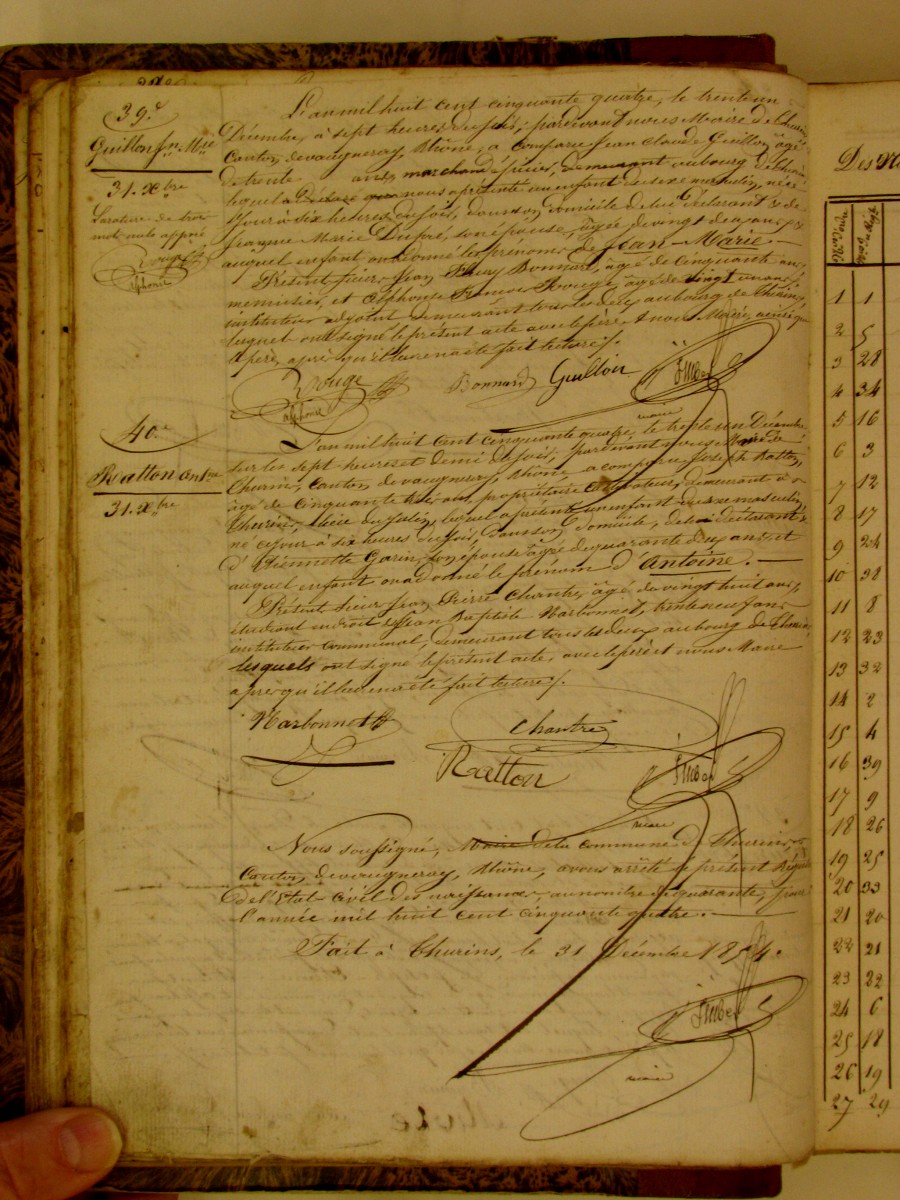 39.e
Guillon Jn. Mie
31. Xbre
Rature de trois
mots nuls approuvé
Rouge
alphonse
L'an mil huit cent cinquante quatre, le trente un
Décembre, à sept heures du soir; pardevant nous Maire de Thurins,
Canton de vaugneray, Rhône, a comparu Jean Claude Guillon, âgé
de trente ans, marchand épicier, demeurant au bourg de Thurins
lequel nous a présenté un enfant du sexe masculin, né ce
jour à six heures du soir, dans son domicile de lui déclarant & de
Marie Dupré, son épouse, âgée de vingt deux ans, et
auquel enfant on a donné les prénoms de Jean-Marie.
Présent sieur Jean Bonnard, âgé de cinquante ans,
menuisier, et Alphonse François Rouge, âgé de vingt un ans,
instituteur adjoint demeurant tous les deux au bourg de Thurins,
lesquels ont signé le présent acte avec le père & nous Maire,
après qu'il leur en a été fait lecture.
Rouge
alphonse
Bonnard
Guillon
Imbert
maire
40.e
Ratton Antne
31. Xbre
L'an mil huit cent cinquante quatre, le trente un Décembre
sur les sept heures et demi du soir, pardevant nous Maire de
Thurins, Canton de vaugneray, Rhône a comparu Joseph Ratton,
âgé de cinquante trois ans, propriétaire cultivateur, demeurant à
Thurins, lieu du lequel a présenté un enfant du sexe masculin,
né ce jour à six heures du soir, dans son domicile, de lui déclarant &
d'Etiennette Garin, son épouse âgée de quarante deux ans, et
auquel enfant on a donné le prénom d'Antoine.
Présent sieur Jean Pierre Chantre, âgé de vingt huit ans,
étudiant en droit & Jean Baptiste Narbonnet, trente neuf ans
instituteur communal, demeurant tous les deux au bourg de Thurins
lesquels ont signé le présent acte, avec le père et nous Maire
après qu'il leur en a été fait lecture.
Narbonnet
Chantre
Ratton
Imbert
maire
Nous soussigné, Maire de la commune de Thurins,
Canton de vaugneray, Rhône, avons arrêté le présent Régistre
de l'Etat-Civil des naissances, au nombre de quarante, pour
l'année mil huit cent cinquante quatre.
Fait à Thurins, le 31 Décembre 1854.
Imbert
maire
Des
1 1
2 5
3 28
4 34
5 16
6 3
7 12
8 17
9 24
10 38
11 8
12 23
13 32
14 2
15 4
16 39
17 9
18 26
19 25
20 33
21 20
22 21
23 22
24 6
25 18
26 19
27 29